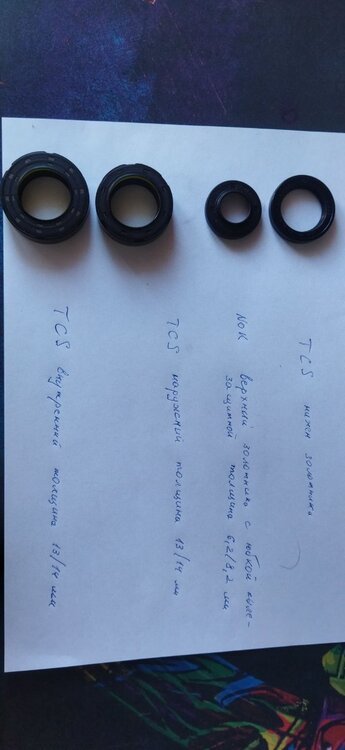 TCS нижн золотника
NOK верхний золотника с юбкой пыле-
защитной толщина 6,2/8,2 мм
TCS наружный толщина 13/14 мм
TCS внутренний толщина 13/14 мм